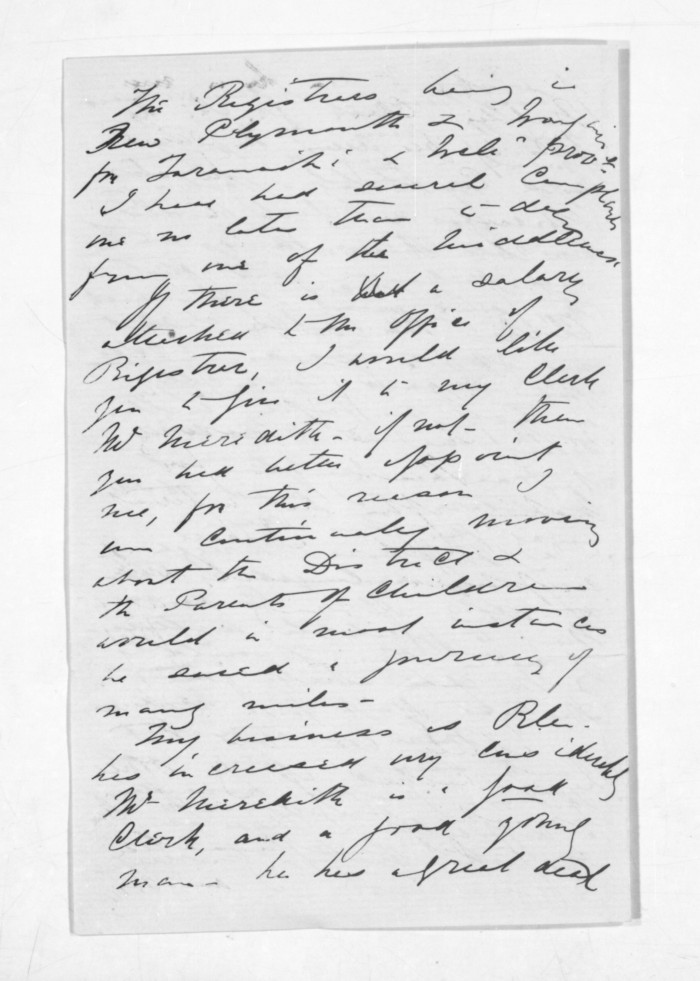 The Registrars being in
New Plymouth & Wanganui
for Taranaki & Well<sup>n</sup> Prov<sup>ces</sup>
I have had several Complaints
one no later than to-day
from one of the
If there is a salary
attached to the office of
Registrar, I would like
you to give it to my Clerk
Mr Meredith - if not - then
you had better appoint
me, for this reason I
am continually moving
about the District &
the Parents of Children
would in most instances
be saved a journey of
many miles -
My business as R.M.
has increased very considerably
Mr Meredith is a good
Clerk, and a good young
man - he has a great deal